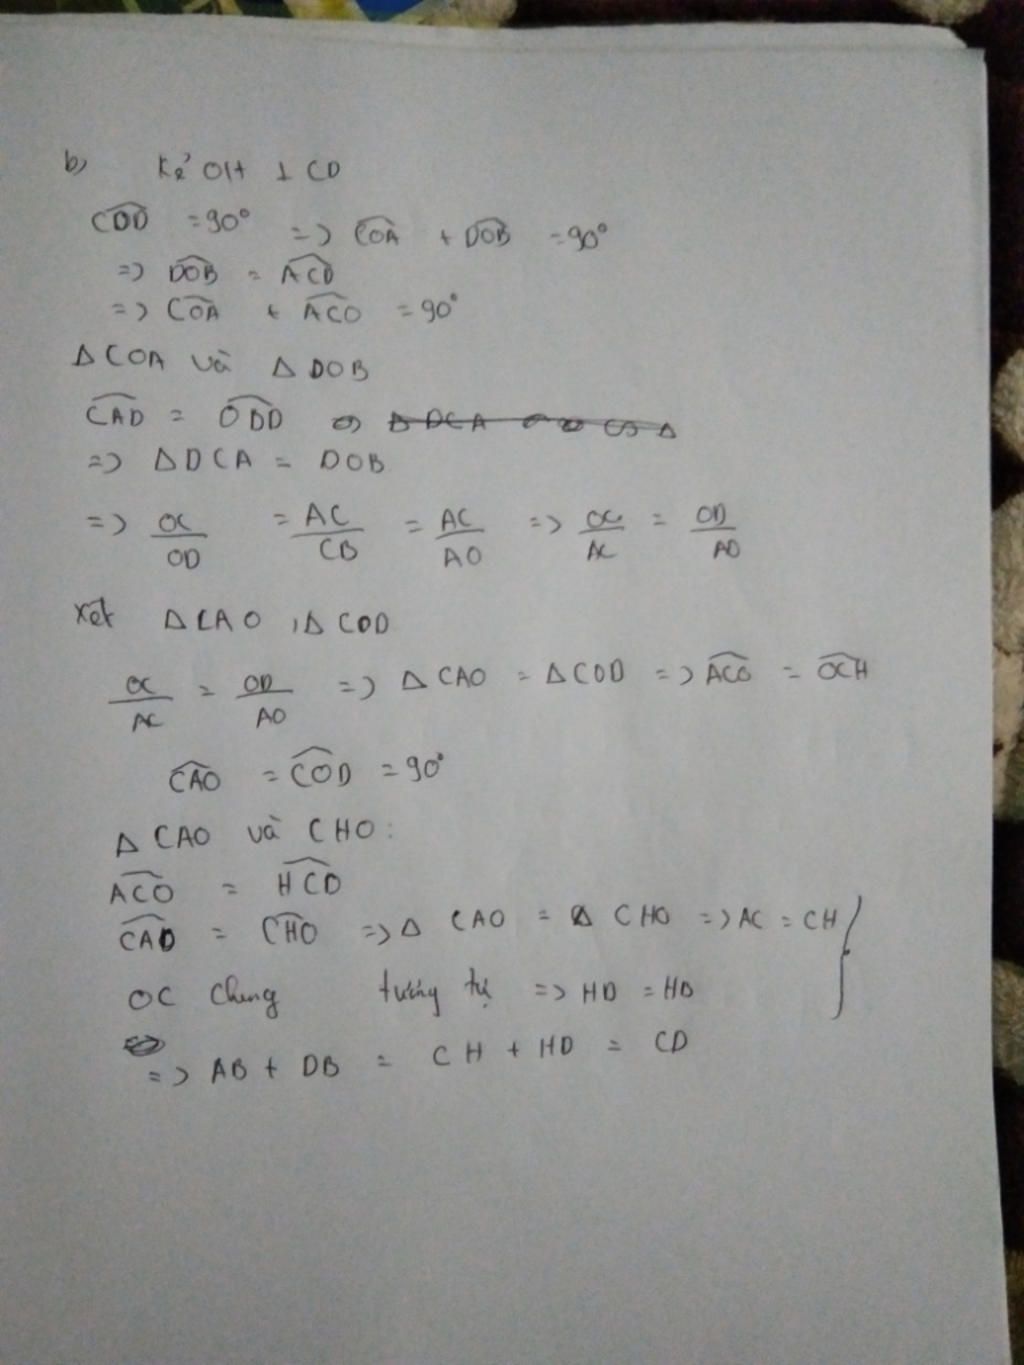 b) Kẻ OH ⊥ CD
∠COD = 90° => ∠COA + ∠DOB = 90°
=> ∠DOB = ∠ACD
=> ∠COA + ∠ACO = 90°
Δ COA và Δ DOB
∠CAD = ∠OBD
=> Δ DCA = DOB
=> OC/OD = AC/CB = AC/AO => OC/AC = OD/AO
xét Δ CAO , Δ COD
OC/AC = OD/AO => Δ CAO = Δ COD => ∠ACO = ∠OCH
∠CAO = ∠COD = 90°
Δ CAO và CHO :
∠ACO = ∠HCD
∠CAO = ∠CHO => Δ CAO = Δ CHO => AC = CH
OC chung tương tự => HD = HB
=> AB + DB = CH + HD = CD